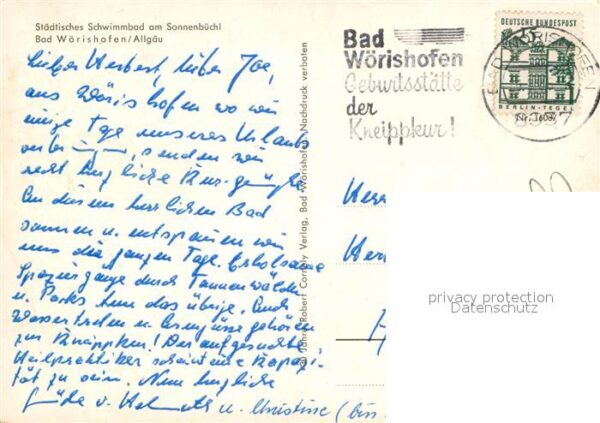 Städtisches Schwimmbad am Sonnenbüchl
Bad Wörishofen/Allgäu
Lieber Herbert, lieber Joe,
aus Wörishofen wo wir
einige Tage unseres Urlaubs
senden wir
recht herzliche Kur-grüße
An diesem herrlichen Bad
sonnen u. entspannen wir
uns die ganzen Tage. Erholsame
Spaziergänge durch Tannenwälder
u. Parks tun das übrige. Auch
Wassertreten u. Armgüsse gehören
zur Kneippkur! Der aufgesuchte
Heilpraktiker scheint eine Kapazi-
tät zu sein. Nun herzliche
Grüße v. Helmuth u. Christine (bis
Jahre Robert Cordely Verlag, Bad Wörishofen, Nachdruck verboten
Bad
Wörishofen
Geburtsstätte
der
Kneippkur!
DEUTSCHE BUNDESPOST
BERLIN-TEGEL
BAD WÖRISHOFEN
Herr
privacy protection
Datenschutz